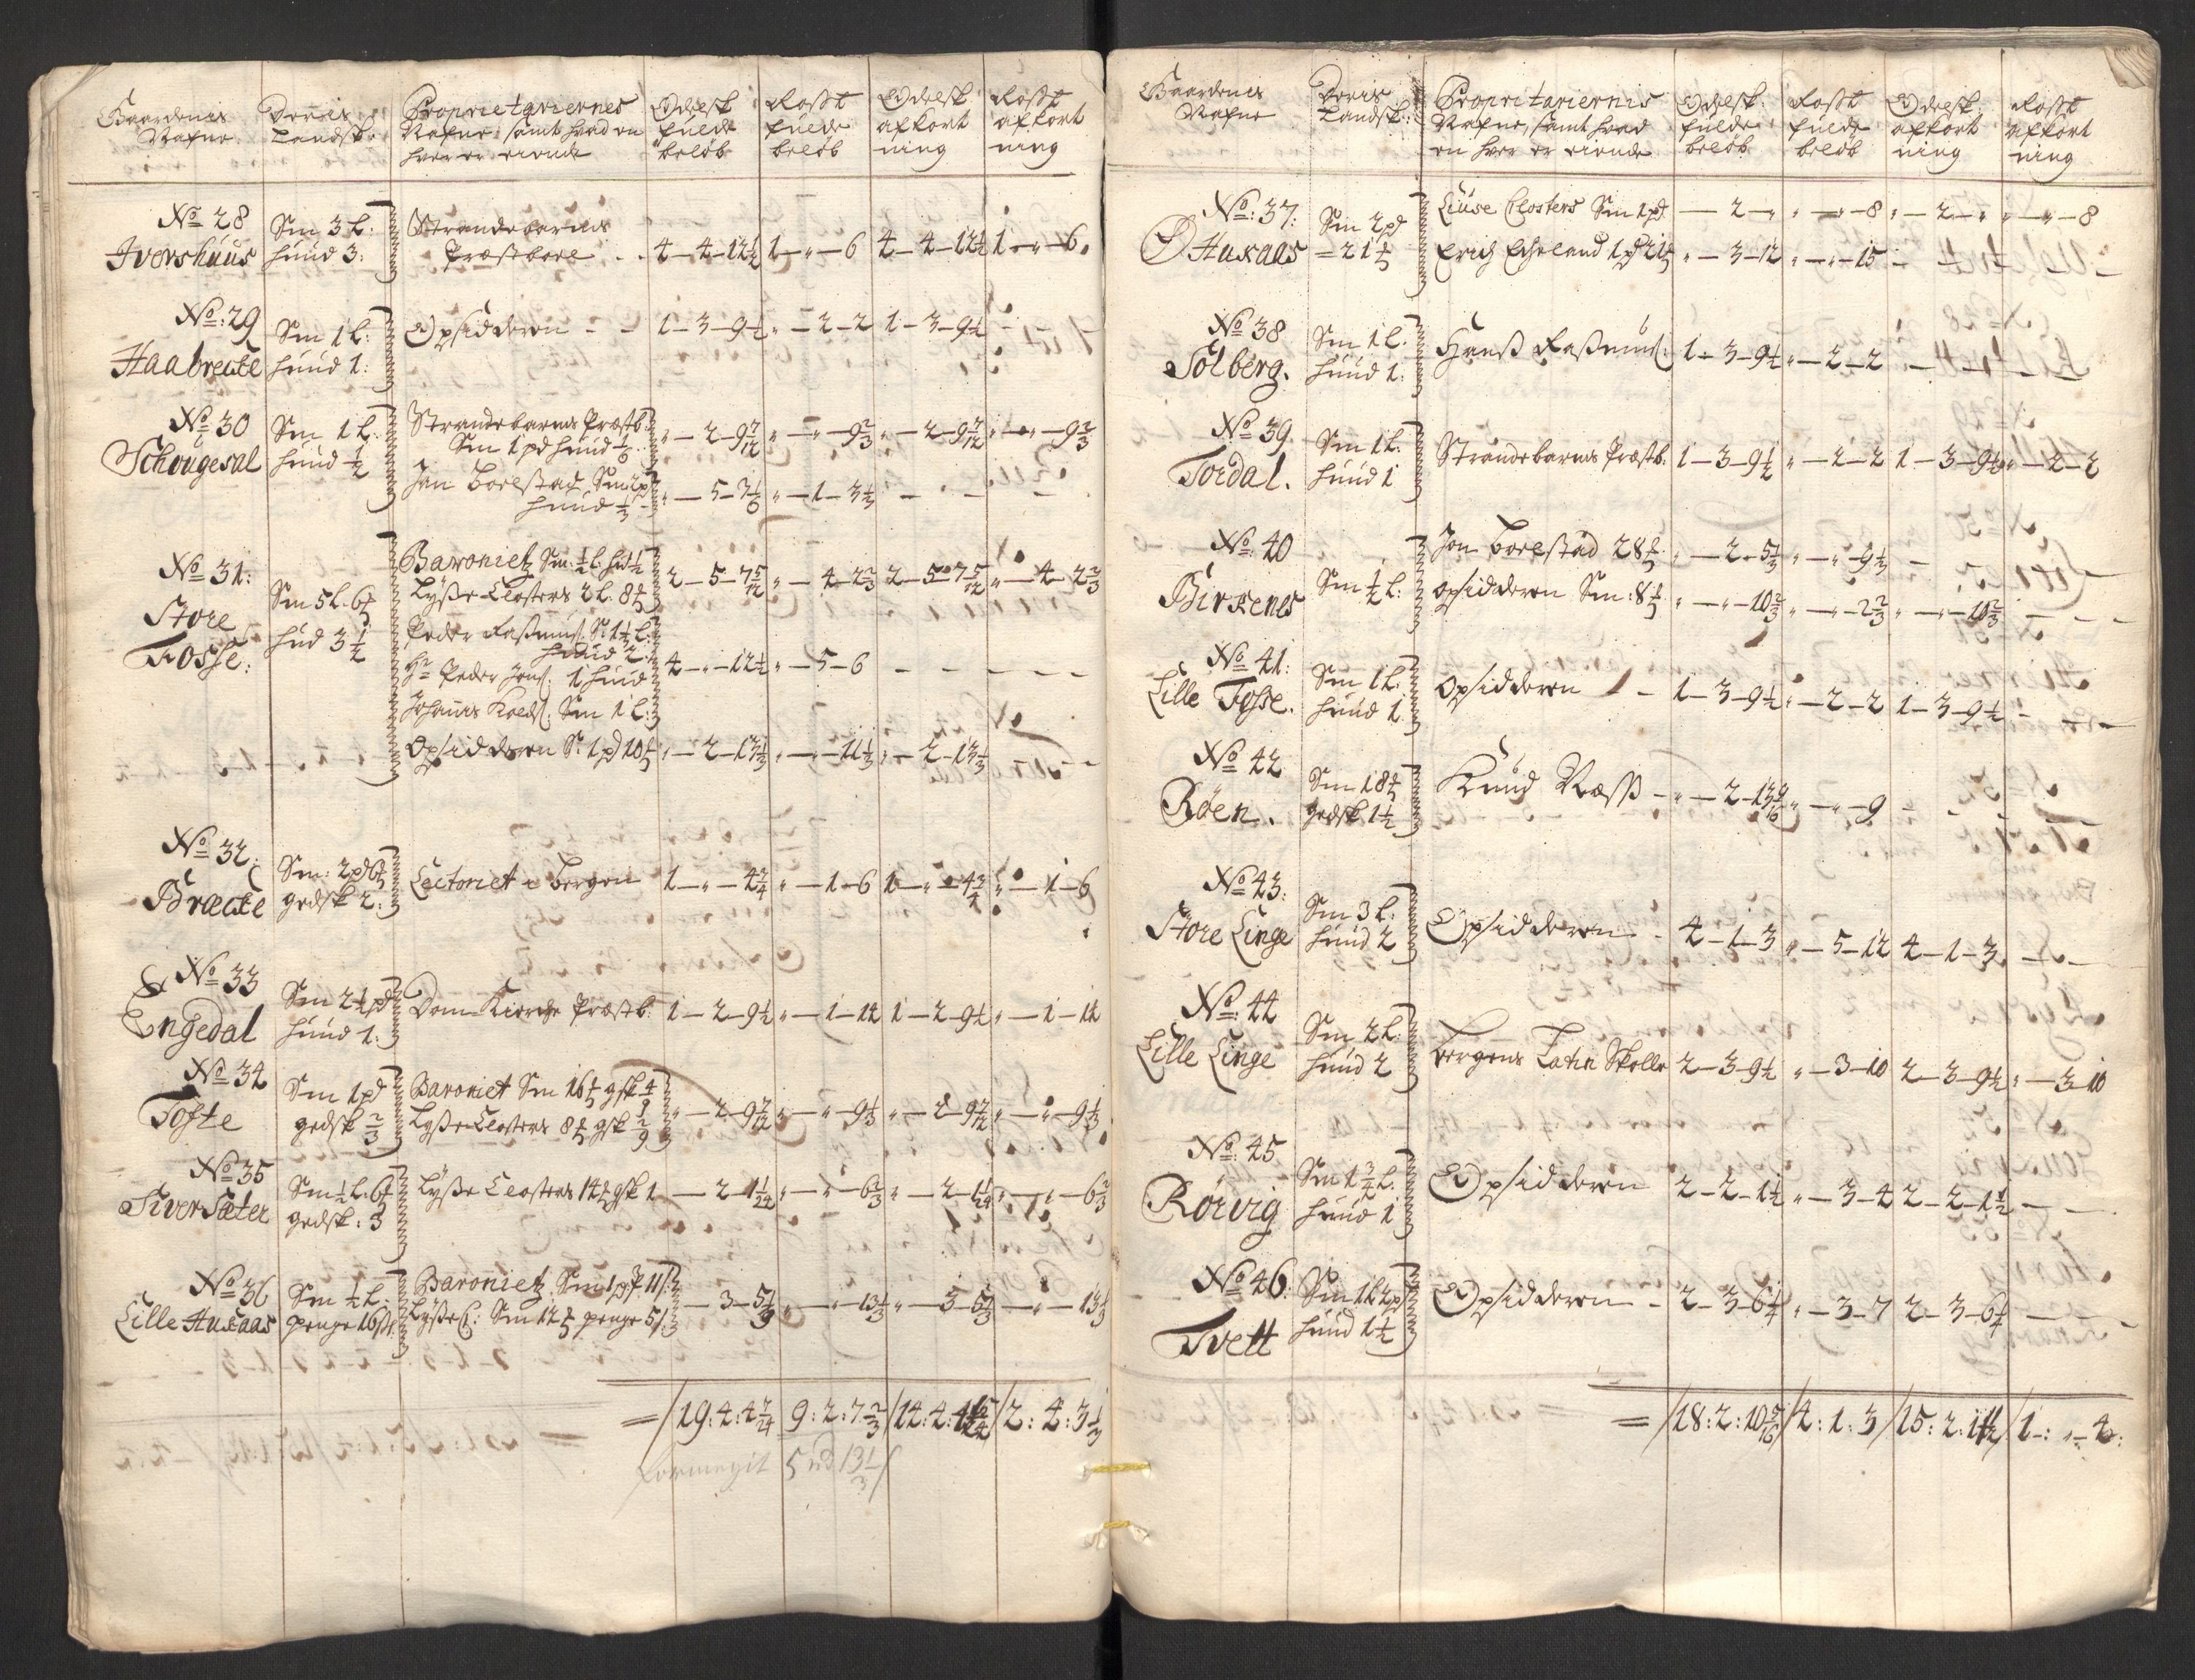 Gaardenis Nafne
Deris Landsk:
Proprietariernes Nafne, samt hvad en hver er eiende
Odelsk fulde beløb
Rostt: fulde beløb
Odelsk afkort ning
Rostt afkort ning
No 28 Ivershuus
Sm 3 L: huud 3:
Strandebarms Præstbore
4-4-12½ 1-"-6 4-4-12½ 1-"-6
No: 29 Haabrecke
Sm 1 L: huud 1:
Opsidderen
1-3-9½ "-2-2 1-3-9½ -
No 30 Schougesal
Sm 1 L: huud ½
Strandebarms Præstb: Sm 1 pd huud 1/6
"-2-9 7/12 "-"-9⅔ "-2-9 7/12 "-"-9⅔
Jon Borestad Sm 2 pd huud ⅓
"-5-3 1/6 "-1-3⅓ - -
No 31: Store Fosse:
Sm 5 L. 6 hud 3½
Baroniet Sm: ½ L: hud ½
Lysse Closters 2 L. 8
2-5-7 5/12 "-4-2⅔ 2-5-7 5/12 "-4-2⅔
Peder Rasmus: S: 1½ L: huud 2:
Hr Peder Jens: 1 huud
Johanes Kolds: Sm 1 L:
4-"-12½ "-5-6 - - - -
Opsidderen S: 1 pd 10
"-2-13⅓ "-"-11⅓ "-2-13⅓ -
No 32: Bræcke
Sm: 2 pd 6 gedsk 2:
Lectoriet i Bergen
1-"-4¾ "-1-6 1-"-4¾ "-1-6
No 33 Engedal
Sm 2½ pd huud 1:
Dom Kierche Præstb:
1-2-9½ "-1-14 1-2-9½ "-1-14
No 34 Tofte
Sm 1 pd gedsk ⅔
Baroniet Sm 16 gsk 4/9
Lysse Closters 8 gsk 2/9
"-2-9 7/12 "-"-9⅓ "-2-9 7/12 "-"-9⅓
No 35 Tversæter
Sm ½ L. 6 gedsk: 3
Lysse Closters 14 gsk 1
-2-1 1/24 "-"-6⅔ "-2-1 1/24 "-"-6⅔
No 36 Lille Auxaas
Sm ½ L. penge 16 s:
Baroniet Sm 1 pd penge 11 s:
Lysse C: Sm 12 penge 5 s:
-3-5⅓ "-"-13⅓ "-3-5⅓ -"-13⅓
= /19:4:4 7/24 9:2:7⅔ /14:2: /2:4:3⅓
Gaardenis Nafne
Deris Landsk:
Propritariernis Nafne, samt hvad en hver er eiende
Odelsk: fulde beløb
Rostt fulde beløb
Odelsk: afkort ning
Rostt afkort ning
No: 37: Auxaas
Sm 2 pd = 21
Liuse Closters Sm 1 pd
-2-" "-"-8 "-2-" "-"-8
Erich Echeland 1 pd 21
"-3-12 "-"-15 - - - -
No 38 Solberg.
Sm 1 L. huud 1:
Hanss Rasmus:
1-3-9½ "-2-2 - - - -
No 39. Tordal.
Sm 1 L. huud 1
Strandebarms Præstb:
1-3-9½ "-2-2 1-3-9½ "-2-2
No: 40 Birkenes
Sm ½ L:
Jon Borestad 28
"-2-5⅓ "-"-9⅓ -
opsidderen Sm: 8
"-"-10⅔ "-"-2⅔ "-"-10⅔ - - -
No 41: Lille Fosse.
Sm 1 L: huud 1
Opsidderen
1-3-9½ "-2-2 1-3-9½ - -
No 42 Røen.
Sm 18 gedsk 1½
Knud Næss
"-2-13 9/16 "-"-9 - - -
No 43: Store Linge
Sm 3 L: huud 2
Opsidderen
4-1-3 "-5-12 4-1-3 - -
No: 44 Lille Linge
Sm 2 L: huud 2
Bergens Latin Skolle
2-3-9½ "-3-10 2-3-9½ "-3-10
No: 45 Rørvig
Sm 1¾ L. huud 1
Opsidderen
2-2-1½ "-3-4 2-2-1½ - -
No 46: Tvett
Sm 1 L 2 pd huud 1½
Opsidderen
2-3-6¼ "-3-7 2-3-6¼ - -
= /18:2:10 /4:1:3 /15:2: /1-:"-4: